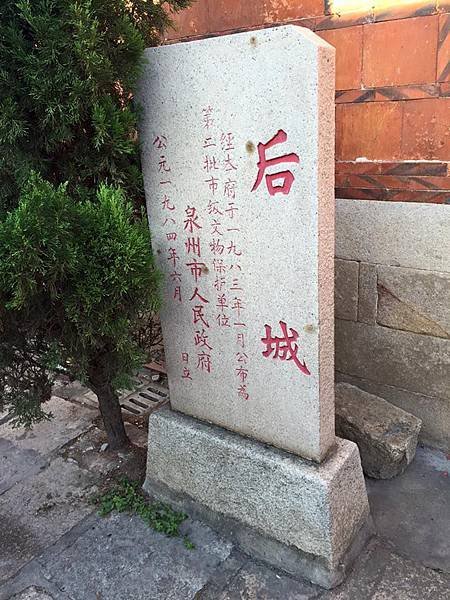 后城
经本府于一九八三年一月公布為
第二批市級文物保护单位
泉州市人民政府
公元一九八四年六月 日立